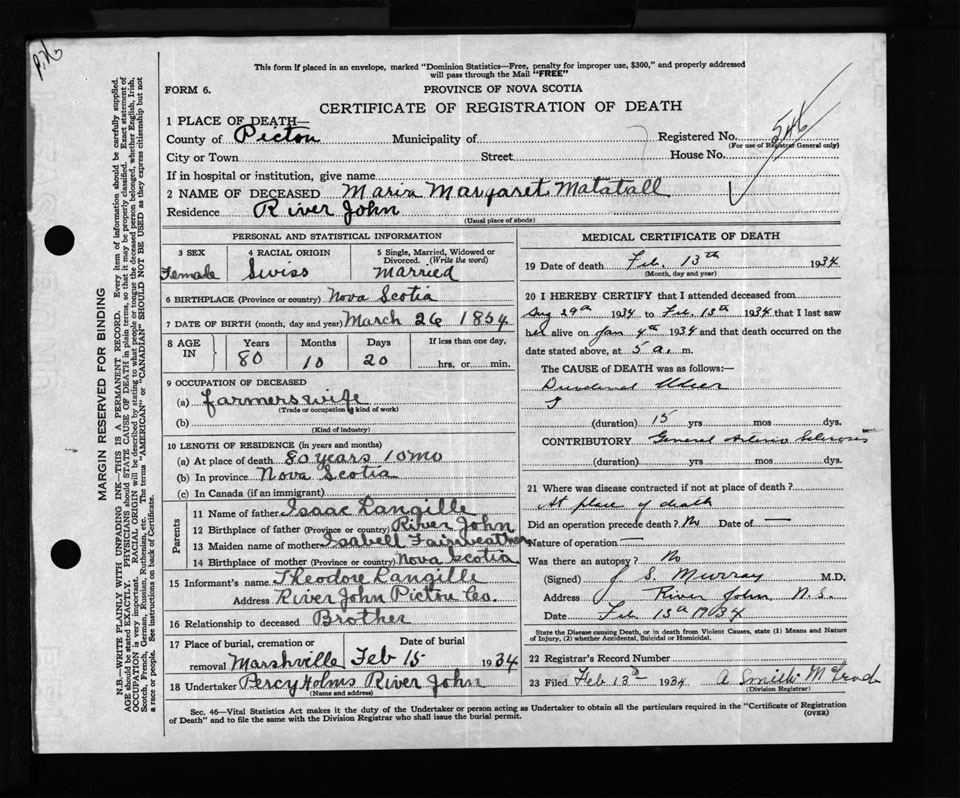 P.N.
This form if placed in an envelope, marked "Dominion Statistics—Free, penalty for improper use, $300," and properly addressed
will pass through the Mail "FREE"
FORM 6.
PROVINCE OF NOVA SCOTIA
CERTIFICATE OF REGISTRATION OF DEATH
1 PLACE OF DEATH—
County of Pictou Municipality of Registered No. 546
(For use of Registrar General only)
City or Town Street House No.
If in hospital or institution, give name
2 NAME OF DECEASED Maria Margaret Matatall
Residence River John
(Usual place of abode)
PERSONAL AND STATISTICAL INFORMATION
3 SEX 4 RACIAL ORIGIN 5 Single, Married, Widowed or
Divorced. (Write the word)
Female Swiss Married
6 BIRTHPLACE (Province or country) Nova Scotia
7 DATE OF BIRTH (month, day and year) March 26 1854
8 AGE IN Years Months Days If less than one day,
80 10 20 hrs. or min.
9 OCCUPATION OF DECEASED
(a) farmers wife
(Trade or occupation or kind of work)
(b)
(Kind of industry)
10 LENGTH OF RESIDENCE (in years and months)
(a) At place of death 80 years 10 mo
(b) In province Nova Scotia
(c) In Canada (if an immigrant)
Parents
11 Name of father Isaac Langille
12 Birthplace of father (Province or country) River John
13 Maiden name of mother Isabell Fairweather
14 Birthplace of mother (Province or country) Nova Scotia
15 Informant's name Theodore Langille
Address River John Pictou Co.
16 Relationship to deceased Brother
17 Place of burial, cremation or Date of burial
removal Marshville Feb 15 1934
18 Undertaker Percy Holms River John
(Name and address)
MEDICAL CERTIFICATE OF DEATH
19 Date of death Feb. 13th 1934
(Month, day and year)
20 I HEREBY CERTIFY that I attended deceased from
Aug 29th 1934 to Feb. 13th 1934 that I last saw
her alive on Jan 4th 1934 and that death occurred on the
date stated above, at 5 a. m.
The CAUSE OF DEATH was as follows:—
Duodenal Ulcer
(duration) 15 yrs mos dys.
CONTRIBUTORY General Arterio Sclerosis
(duration) yrs mos dys.
21 Where was disease contracted if not at place of death?
At place of death
Did an operation precede death? No Date of —
Nature of operation —
Was there an autopsy? No
(Signed) J S. Murray M.D.
Address River John N.S.
Date Feb. 13th 1934
State the Disease causing Death, or in death from Violent Causes, state (1) Means and Nature
of Injury, (2) whether Accidental, Suicidal or Homicidal.
22 Registrar's Record Number
23 Filed Feb 13th 1934
(Division Registrar)
Sec. 46—Vital Statistics Act makes it the duty of the Undertaker or person acting as Undertaker to obtain all the particulars required in the "Certificate of Registration
of Death" and to file the same with the Division Registrar who shall issue the burial permit. (OVER)
MARGIN RESERVED FOR BINDING
N.B.—WRITE PLAINLY WITH UNFADING INK—THIS IS A PERMANENT RECORD. Every item of information should be carefully supplied.
AGE should be stated EXACTLY. PHYSICIANS should STATE CAUSE OF DEATH in plain terms, so that it may be properly classified. Exact statement of
OCCUPATION is very important. RACIAL ORIGIN will be described by stating to what people or tongue the deceased person belonged, whether English, Irish,
Scotch, French, German, Russian, Ruthenian, etc. The terms "AMERICAN" or "CANADIAN" SHOULD NOT BE USED as they express citizenship but not
a race or people. See instructions on back of Certificate.